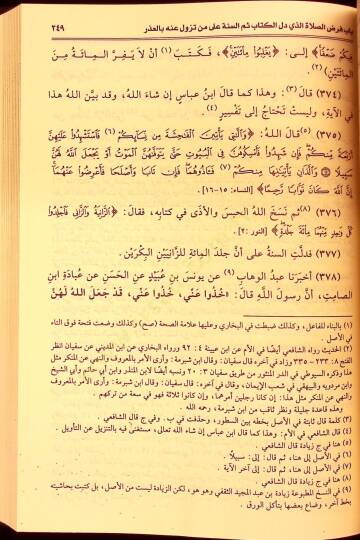 باب فرض الصلاة الذي دل الكتاب ثم السنة على من تزول عنه بالعذر ٢٤٩
فِيكُمْ ضَعْفًا﴾ إلى: ﴿يَغْلِبُوا مِائَتَيْنِ﴾، فَكَتَبَ (١) أنْ لاَ يَفِرَّ المِائَةُ مِنَ
المِائَتَيْنِ) (٢).
(٣٧٤) قالَ (٣): وهذا كما قالَ ابنُ عباسٍ إن شاءَ اللهُ، وقد بيَّن اللهُ هذا
في الآيةِ، وليستْ تَحْتاجُ إلى تَفْسِيرٍ (٤).
(٣٧٥) (٥) قالَ اللهُ: ﴿وَالَّتِي يَأْتِينَ الْفَاحِشَةَ مِن نِّسَائِكُمْ (٦) فَاسْتَشْهِدُوا عَلَيْهِنَّ
أَرْبَعَةً مِّنكُمْ فَإِن شَهِدُوا فَأَمْسِكُوهُنَّ فِي الْبُيُوتِ حَتَّى يَتَوَفَّاهُنَّ الْمَوْتُ أَوْ يَجْعَلَ اللَّهُ لَهُنَّ
سَبِيلًا ۝ وَاللَّذَانِ يَأْتِيَانِهَا مِنكُمْ (٧) فَآذُوهُمَا فَإِن تَابَا وَأَصْلَحَا فَأَعْرِضُوا عَنْهُمَا
إِنَّ اللَّهَ كَانَ تَوَّابًا رَّحِيمًا﴾ [النساء: ١٥-١٦].
(٣٧٦) (٨) ثم نَسَخَ اللهُ الحبسَ والأذى في كتابِه، فقالَ: ﴿الزَّانِيَةُ وَالزَّانِي فَاجْلِدُوا
كُلَّ وَاحِدٍ مِّنْهُمَا مِائَةَ جَلْدَةٍ﴾ [النور: ٢].
(٣٧٧) فدلَّتِ السنةُ على أنَّ جلدَ المِائةِ للزَّانِيَيْنِ البِكْرَيْنِ.
(٣٧٨) أخبرَنا عبدُ الوهابِ (٩) عن يونسَ بنِ عُبَيْدٍ عنِ الحَسَنِ عن عُبادةَ ابنِ
الصامتِ، أنَّ رسولَ اللَّهِ قالَ: «خُذُوا عَنِّي، خُذُوا عَنِّي، قَدْ جَعَلَ اللهُ لَهُنَّ
(١) بالبناء للفاعل، وكذلك ضبطت في البخاري وعليها علامة الصحة (صح) وكذلك وضعت فتحة فوق التاء
في الأصل.
(٢) الحديث رواه الشافعي أيضًا في الأم عن ابن عيينة ٤: ٩٢ ورواه البخاري عن ابن المديني عن سفيان انظر
الفتح ٨: ٢٣٣ - ٢٣٥ وزاد في آخره: قال سفيان: وقال ابن شبرمة: وأرى الأمر بالمعروف والنهي عن المنكر مثل
هذا وذكره السيوطي في الدر المنثور من طريق سفيان ٣: ٢٠ ونسبه أيضًا لابن المنذر وابن أبي حاتم وأبي الشيخ
وابن مردويه والبيهقي في شعب الإيمان، وقال في آخره: قال سفيان: وقال ابن شبرمة: وأرى الأمر بالمعروف
والنهي عن المنكر مثل هذا: إن كانا رجلين أمرهما، وإن كانوا ثلاثة فهو في سعة من تركهم.
وهذه قاعدة جليلة ونظر ثاقب من ابن شبرمة، رحمه الله.
(٣) كلمة قال ثابتة في الأصل بخطه بين السطور، وحذفت في ب. وفي ج قال الشافعي.
(٤) قال الشافعي في الأم: وهذا كما قال ابن عباس إن شاء الله تعالى، مستغنى فيه بالتنزيل عن التأويل.
(٥) هنا في ج زيادة قال الشافعي.
(٦) في الأصل إلى هنا، ثم قال: إلى: سبيلًا.
(٧) في الأصل إلى هنا، ثم قال: إلى آخر الآية.
(٨) هنا في ج زيادة قال الشافعي.
(٩) في النسخ المطبوعة زيادة بن عبد المجيد الثقفي وهو هو، لكن الزيادة ليست من الأصل، بل كتبت بحاشيته
بخط آخر، وضاع بعضها بتآكل الورق.